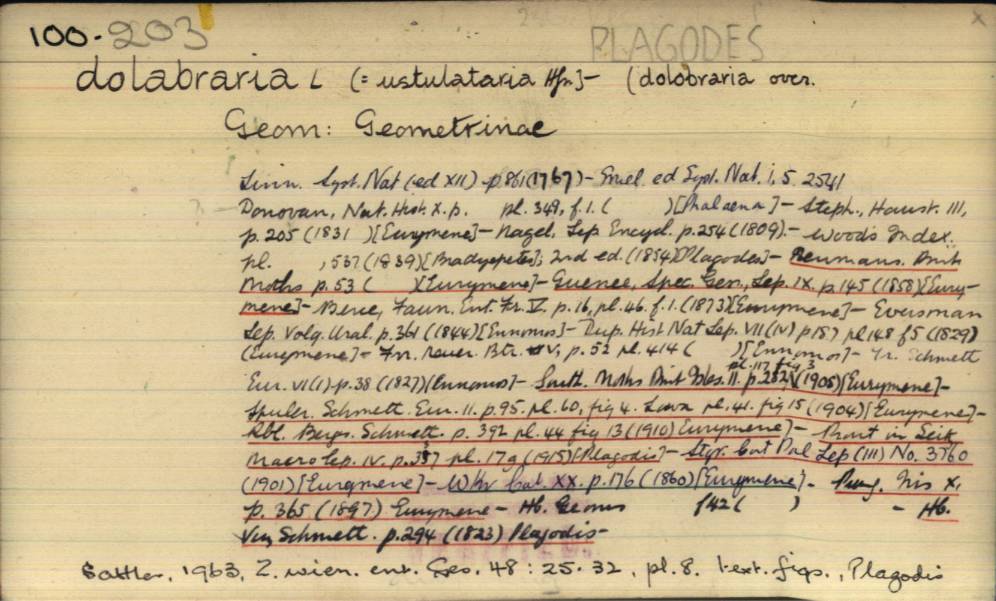 100-203 PLAGODES
dolabraria L (= ustulataria Hfn]- (dolobraria over.
Geom: Geometrinae
Linn. Syst. Nat (ed XII) p 861 (1767) - Gmel. ed Syst. Nat. i, 5. 2541
Donovan, Nat. Hist X. p. pl. 349, f. 1. ( )[Phalaena]- Steph., Haust. III,
p. 205 (1831 )[Eurymene]- Nagel. Lep Encycl. p. 254 (1809).- Woods Index.
pl. , 537 (1839)[Bradyepetes]; 2nd ed. (1854)[Plagodes]- Neumans. Brit
Moths p. 53 ( )[Eurymene]- Guenee, Spec. Gen., Lep. IX. p. 145 (1858)[Eury-
mene]- Berce, Faun. Ent. Fr. V. p. 16, pl. 46. f. 1. (1873)[Eurymene]- Eversman
Lep. Volg. Ural. p. 361 (1844)[Ennomos]- Dup. Hist Nat Lep. VII (IV) p 187 pl 148 f 5 (1829)
(Eurymene]- Frr. neuer. Btr. V, p. 52 pl. 414 ( )[Ennomos]- Tr. Schmett
Eur. VI (1) p. 38 (1827)[Ennomos]- South. Moths Brit Isles. II. p. 282, pl. 117, fig 3 (1908)[Eurymene]-
Spuler. Schmett. Eur. II. p. 95. pl. 60, fig 4. Larva pl. 41. fig 15 (1904)[Eurymene]-
Rbl. Bergs. Schmett. p. 392 pl. 44 fig 13 (1910) Eurymene]- Prout in Seitz
Macrolep. IV. p. 337 pl. 17g (1915)[Plagodis]- Stgr. Cat Pal Lep (III) No. 3760
(1901)[Eurymene]- Wkr Cat. XX. p. 176 (1860)[Eurymene]- Pung. Iris X,
p. 365 (1897) Eurymene - Hb. Geoms f 42 ( ) - Hb.
Verz Schmett. p. 294 (1823) Plagodis-
Sattler, 1963, Z. wien. ent. Ges. 48 : 25-32, pl. 8. text. figs., Plagodis